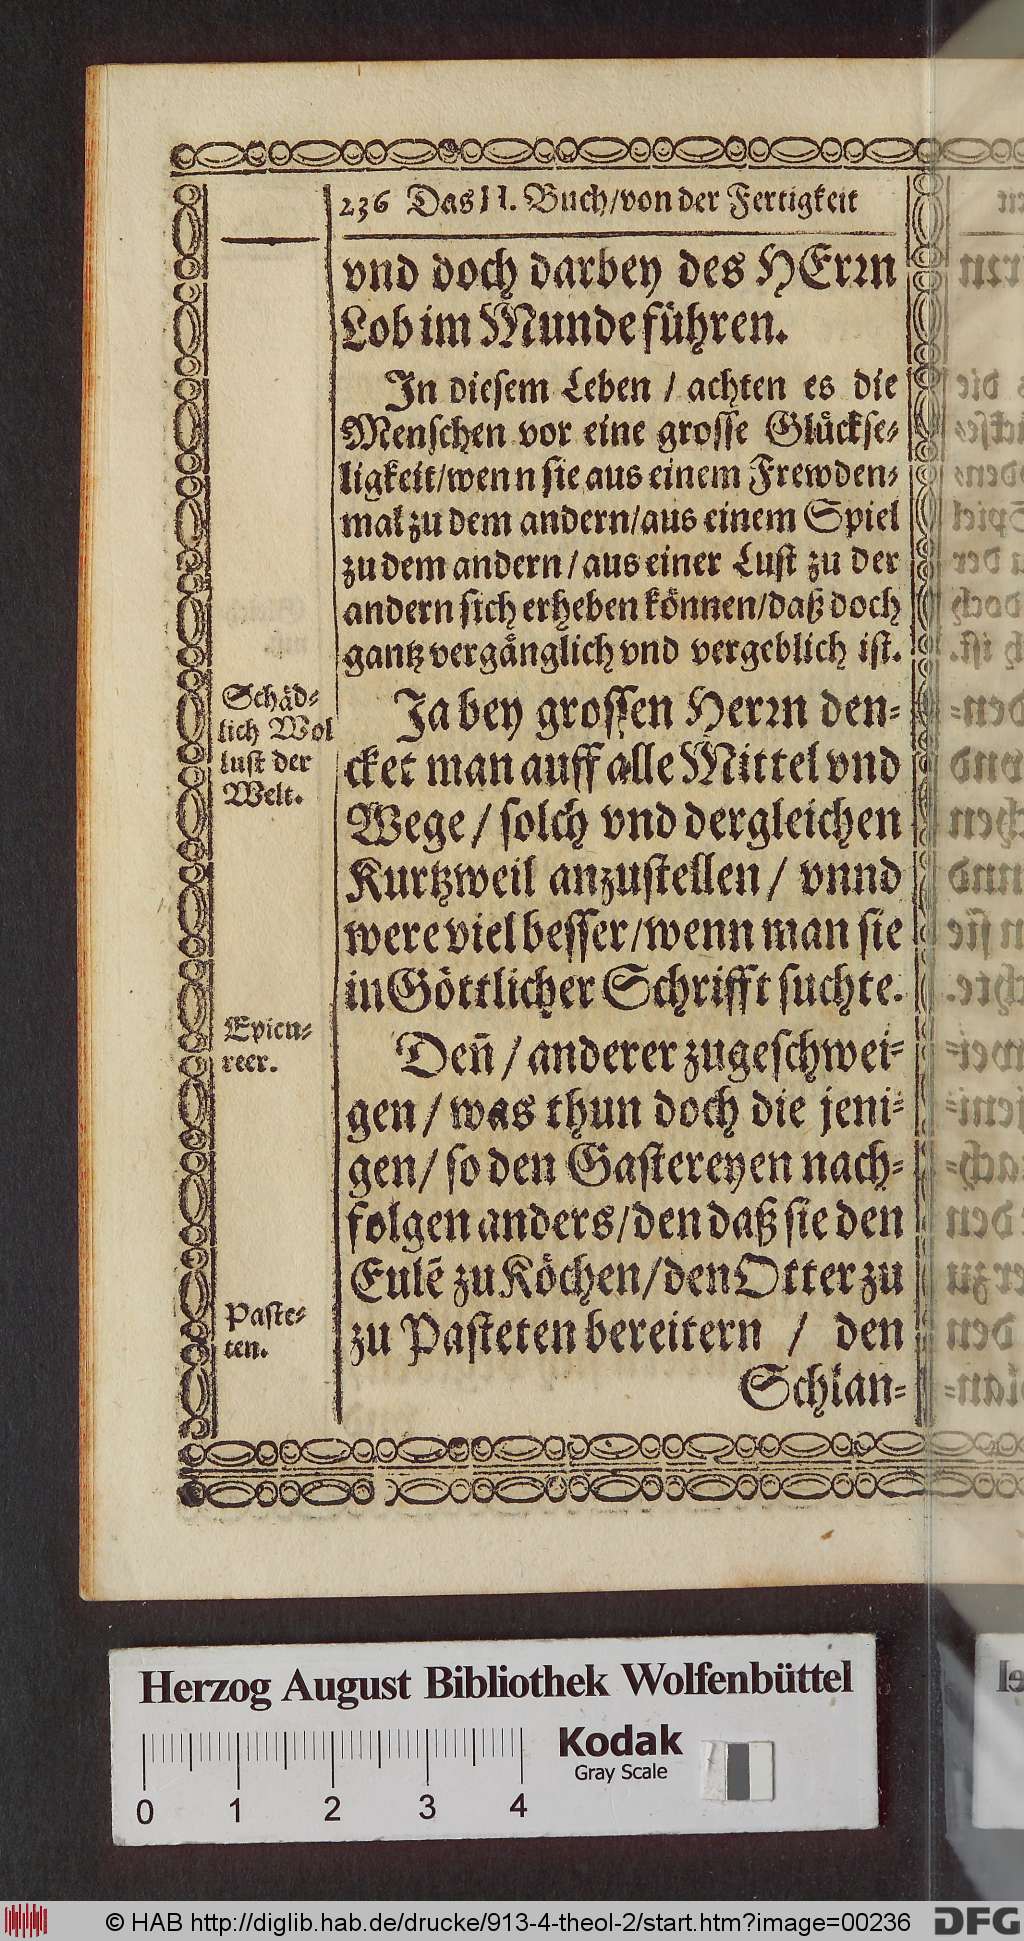 236 Das II. Buch/von der Fertigkeit
vnd doch darbey des HErꝛn
Lob im Munde führen.
In diesem Leben / achten es die
Menschen vor eine grosse Glückse-
ligkeit/wenn sie aus einem Frewden-
mal zu dem andern/aus einem Spiel
zu dem andern/aus einer Lust zu der
andern sich erheben können/daß doch
gantz vergänglich vnd vergeblich ist.
Schäd-
lich Wol
lust der
Welt.
Ja bey grossen Herꝛn den-
cket man auff alle Mittel vnd
Wege / solch vnd dergleichen
Kurtzweil anzustellen / vnnd
were viel besser/wenn man sie
in Göttlicher Schrifft suchte.
Epicu-
reer.
Deñ / anderer zugeschwei-
gen / was thun doch die jeni-
gen / so den Gastereyen nach-
folgen anders/den daß sie den
Eulē zu Köchen/den Otter zu
Paste-
ten.
zu Pasteten bereitern / den
Schlan-
Herzog August Bibliothek Wolfenbüttel
Kodak
Gray Scale
0 1 2 3 4
© HAB http://diglib.hab.de/drucke/913-4-theol-2/start.htm?image=00236
DFG